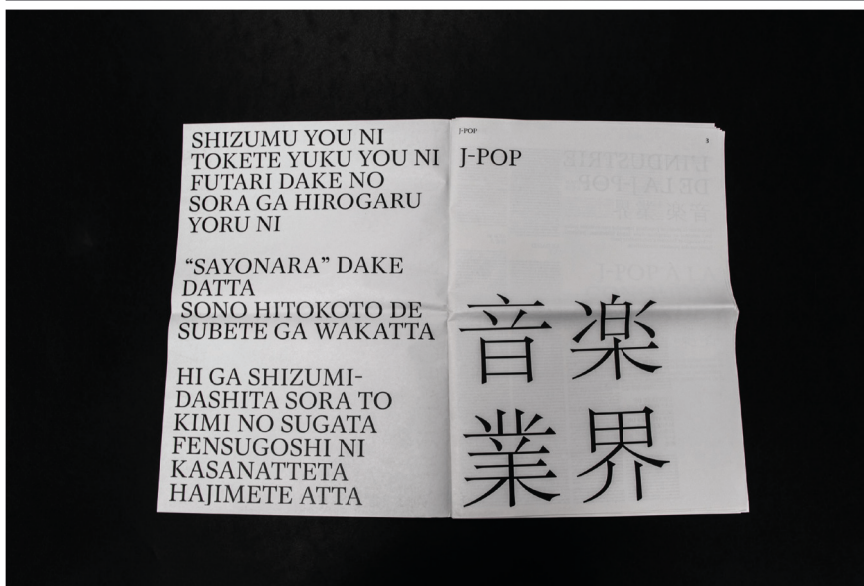 SHIZUMU YOU NI
TOKETE YUKU YOU NI
FUTARI DAKE NO
SORA GA HIROGARU
YORU NI
“SAYONARA” DAKE
DATTA
SONO HITOKOTO DE
SUBETE GA WAKATTA
HI GA SHIZUMI-
DASHITA SORA TO
KIMI NO SUGATA
FENSUGOSHI NI
KASANATTETA
HAJIMETE ATTA
J-POP
3
J-POP
L'INDUSTRIE
DE LA J-POP
音楽
業界